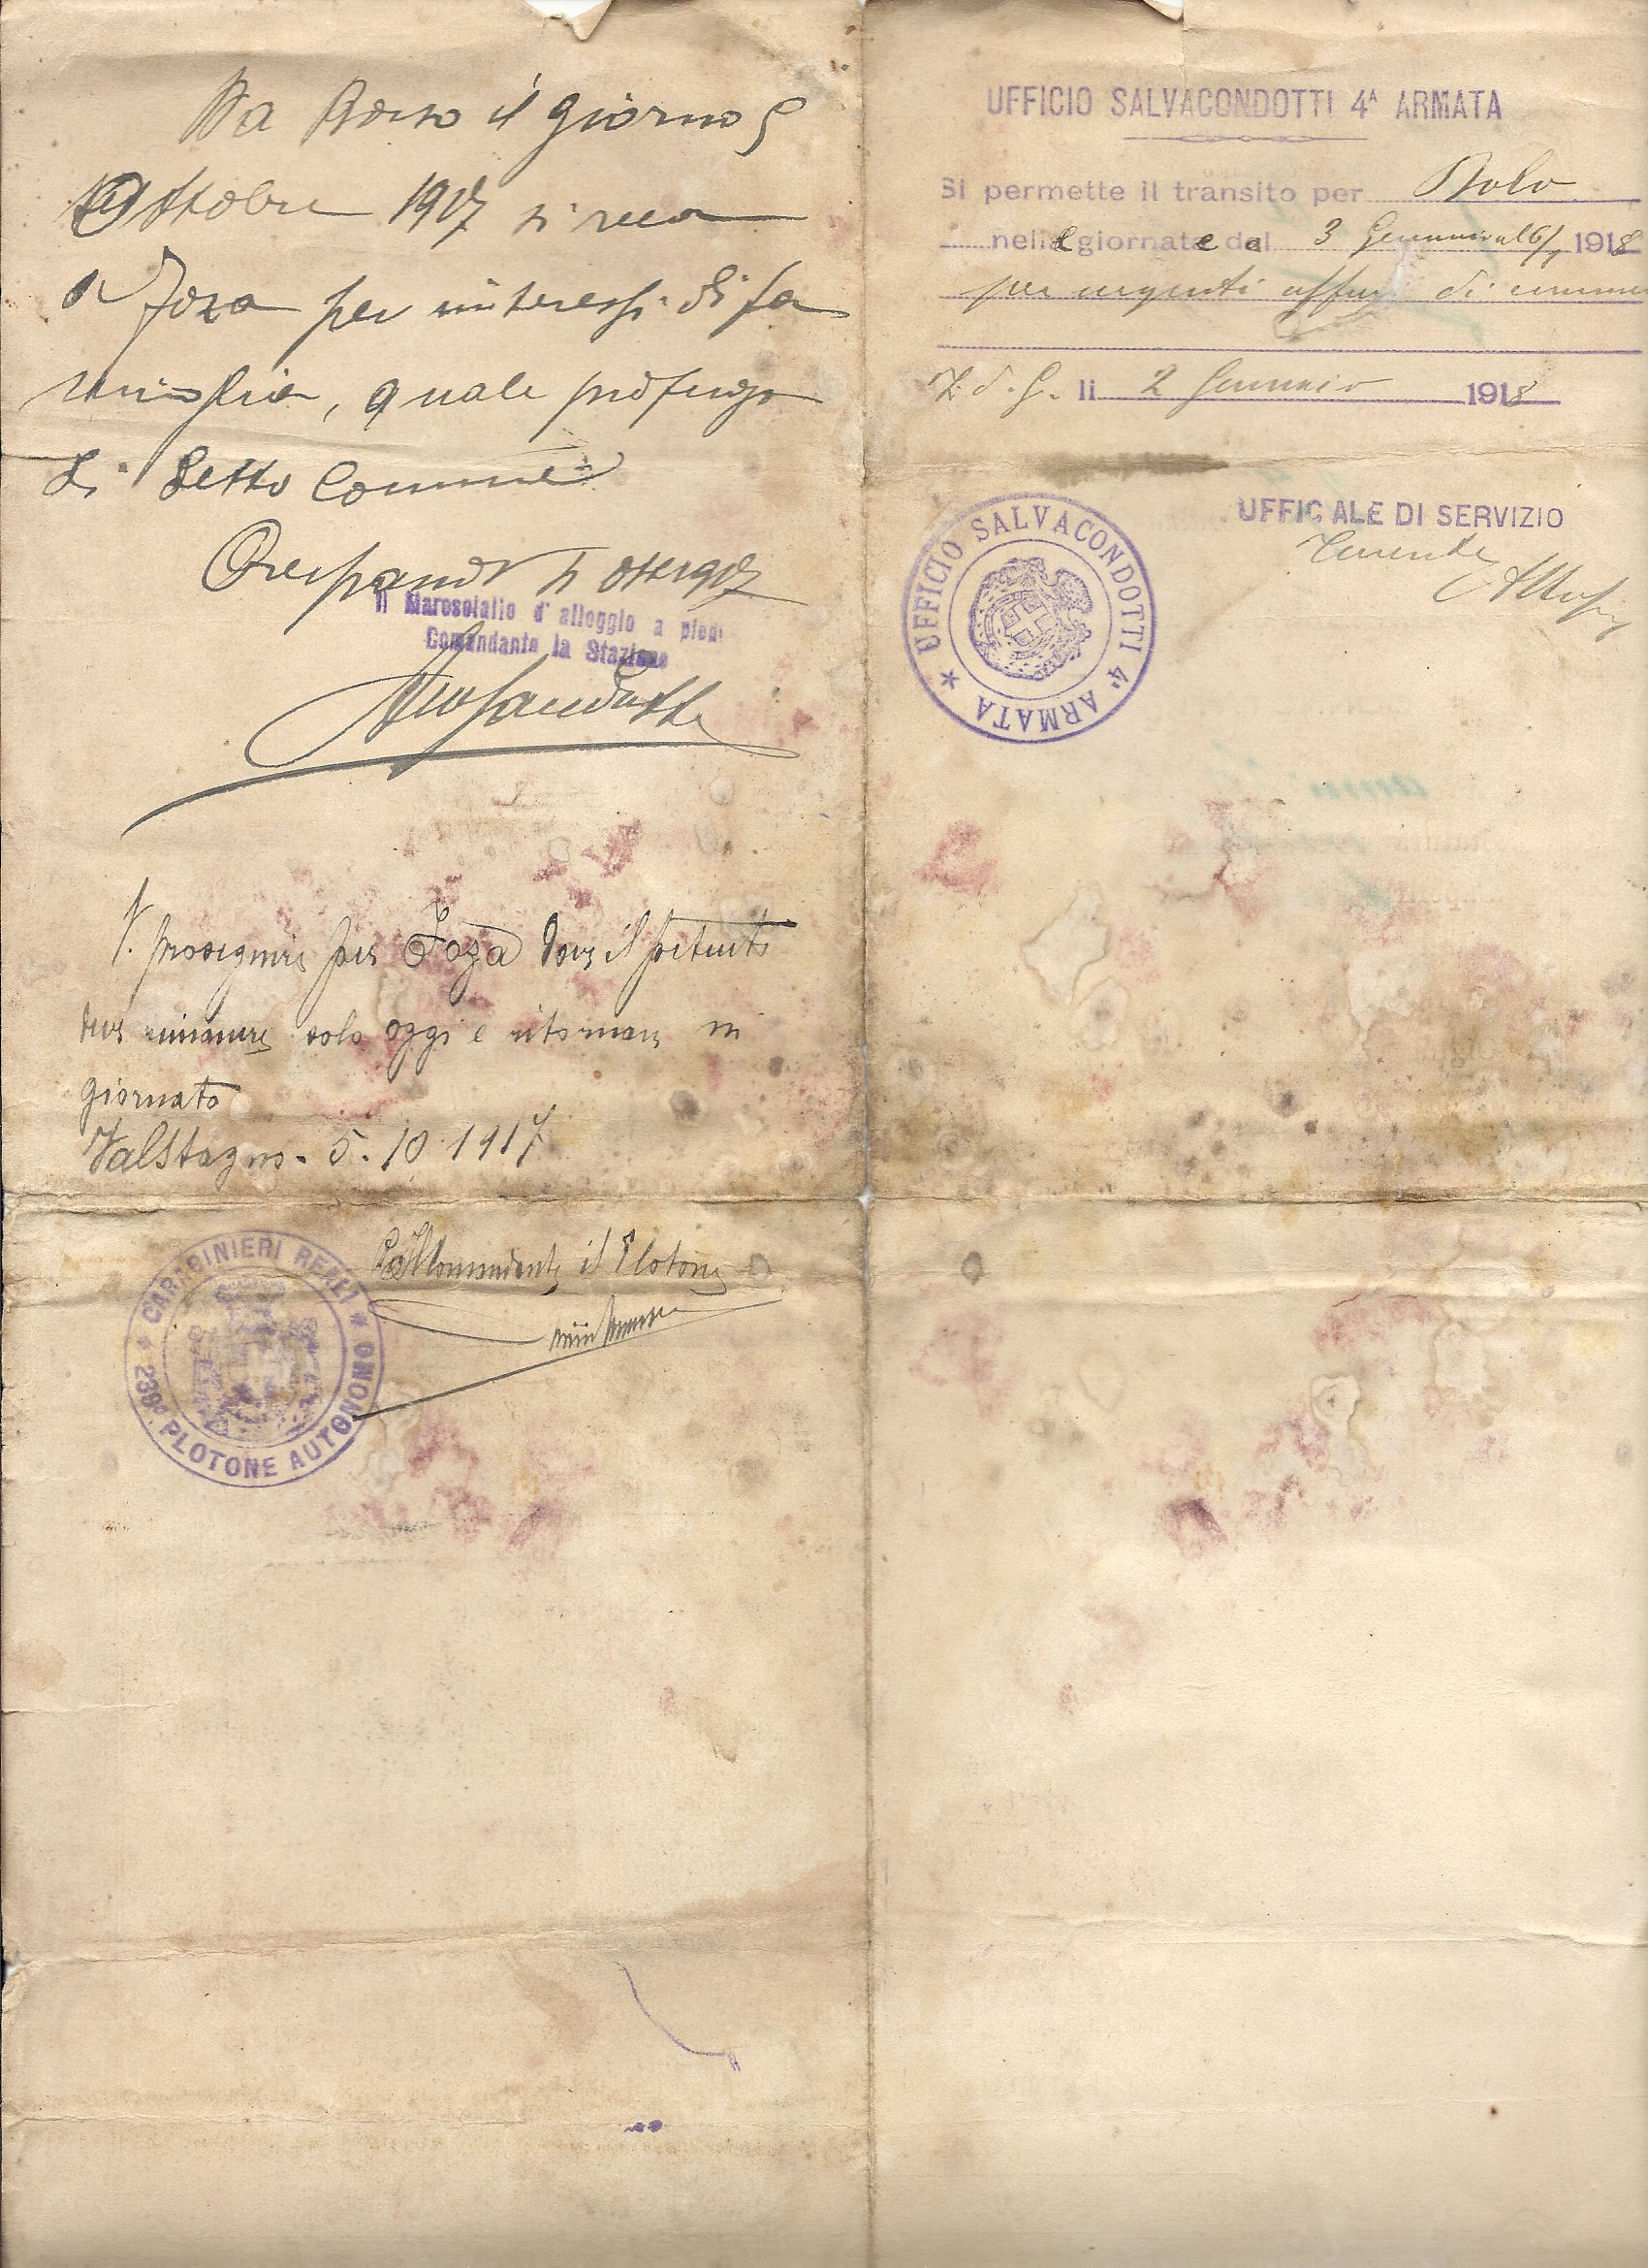 Da Borso il giorno 5
Ottobre 1917 si reca
a Foza per interessi di fa
miglia, quale profugo
di detto Comune
Crespano 5 ott 1917
Il Maresciallo d' alloggio a piedi
Comandante la Stazione
V. proseguire per Foza dove il portante
deve rimanere solo oggi e ritornare in
giornata
Valstagna. 5. 10. 1917
Il Comandante il Plotone
CARABINIERI REALI * 239° PLOTONE AUTONOMO *
UFFICIO SALVACONDOTTI 4ᴬ ARMATA
Si permette il transito per
nelle giornate dal 3 Gennaio al 6/1 1918
per urgenti affari di
Z. d. G. li 2 Gennaio 1918
UFFICIO SALVACONDOTTI 4ᵃ ARMATA *
UFFIC ALE DI SERVIZIO
Tenente